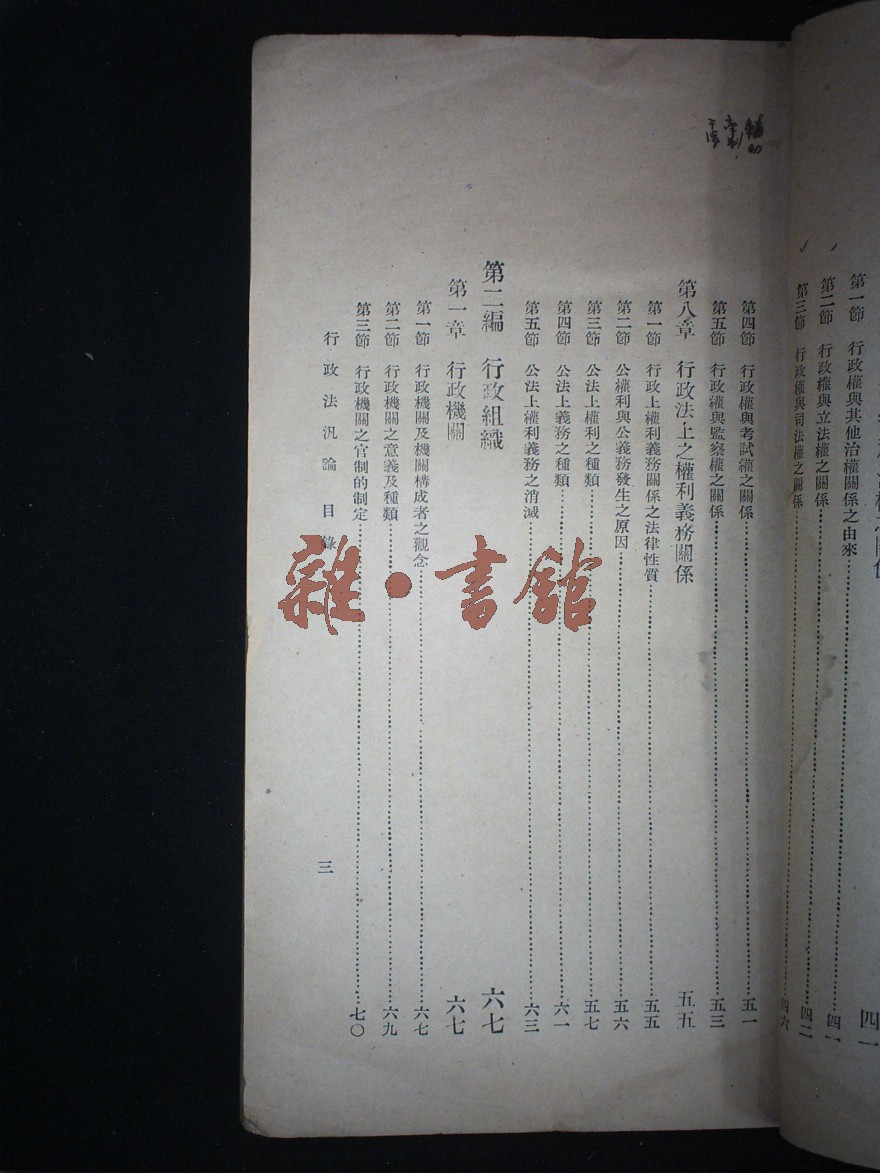 第一節 行政權與其他治權關係之由來
第二節 行政權與立法權之關係
第三節 行政權與司法權之關係 四六
第四節 行政權與考試權之關係 五一
第五節 行政權與監察權之關係 五三
第八章 行政法上之權利義務關係 五五
第一節 行政上權利義務關係之法律性質 五五
第二節 公權利與公義務發生之原因 五六
第三節 公法上權利之種類 五七
第四節 公法上義務之種類 六一
第五節 公法上權利義務之消滅 六三
第二編 行政組織 六七
第一章 行政機關 六七
第一節 行政機關及機關構成者之觀念 六七
第二節 行政機關之意義及種類 六九
第三節 行政機關之官制的制定 七〇
行政法汎論 目錄 三
雜·書館